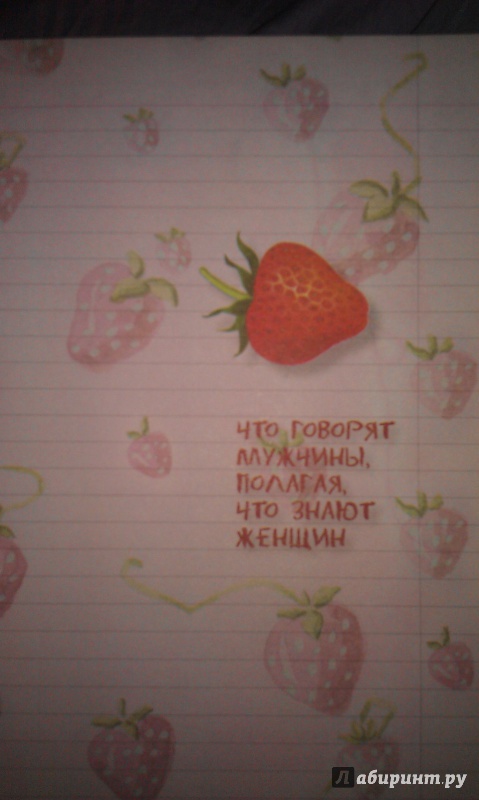 ЧТО ГОВОРЯТ
МУЖЧИНЫ,
ПОЛАГАЯ,
ЧТО ЗНАЮТ
ЖЕНЩИН
Лабиринт.ру